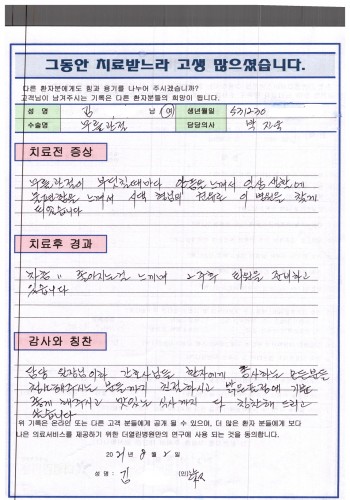 그동안 치료받느라 고생 많으셨습니다.
다른 환자분에게도 힘과 용기를 나누어 주시겠습니까?
고객님이 남겨주시는 기록은 다른 환자분들의 희망이 됩니다.
성 명 김 남 (여) 생년월일 531230
수술명 무릎관절 담당의사 박
치료전 증상
무릎관절이 부딪힐때마다 느껴서 일상 생활에
불편함을 느껴서 권유로 이 병원을 찾게
되었습니다
치료후 경과
차츰 " 좋아지는걸 느끼며 2주후 퇴원을 준비하고
있습니다
감사와 칭찬
담당 원장님이하 간호사님들 환자에게 봉사하는 모든분들
청소해주시는 분들까지 친절하시고 밝은표정에 기분
좋게 해주시고 맛있는 식사까지 다 칭찬해 드리고
싶습니다
위 기록은 온라인 또는 다른 고객 분들에게 공개 될 수 있으며, 더 많은 환자 분들에게 보다
나은 의료서비스를 제공하기 위한 더열린병원만의 연구에 사용 되는 것을 동의합니다.
2021년 8월 2일
성 명 : 김 (인)